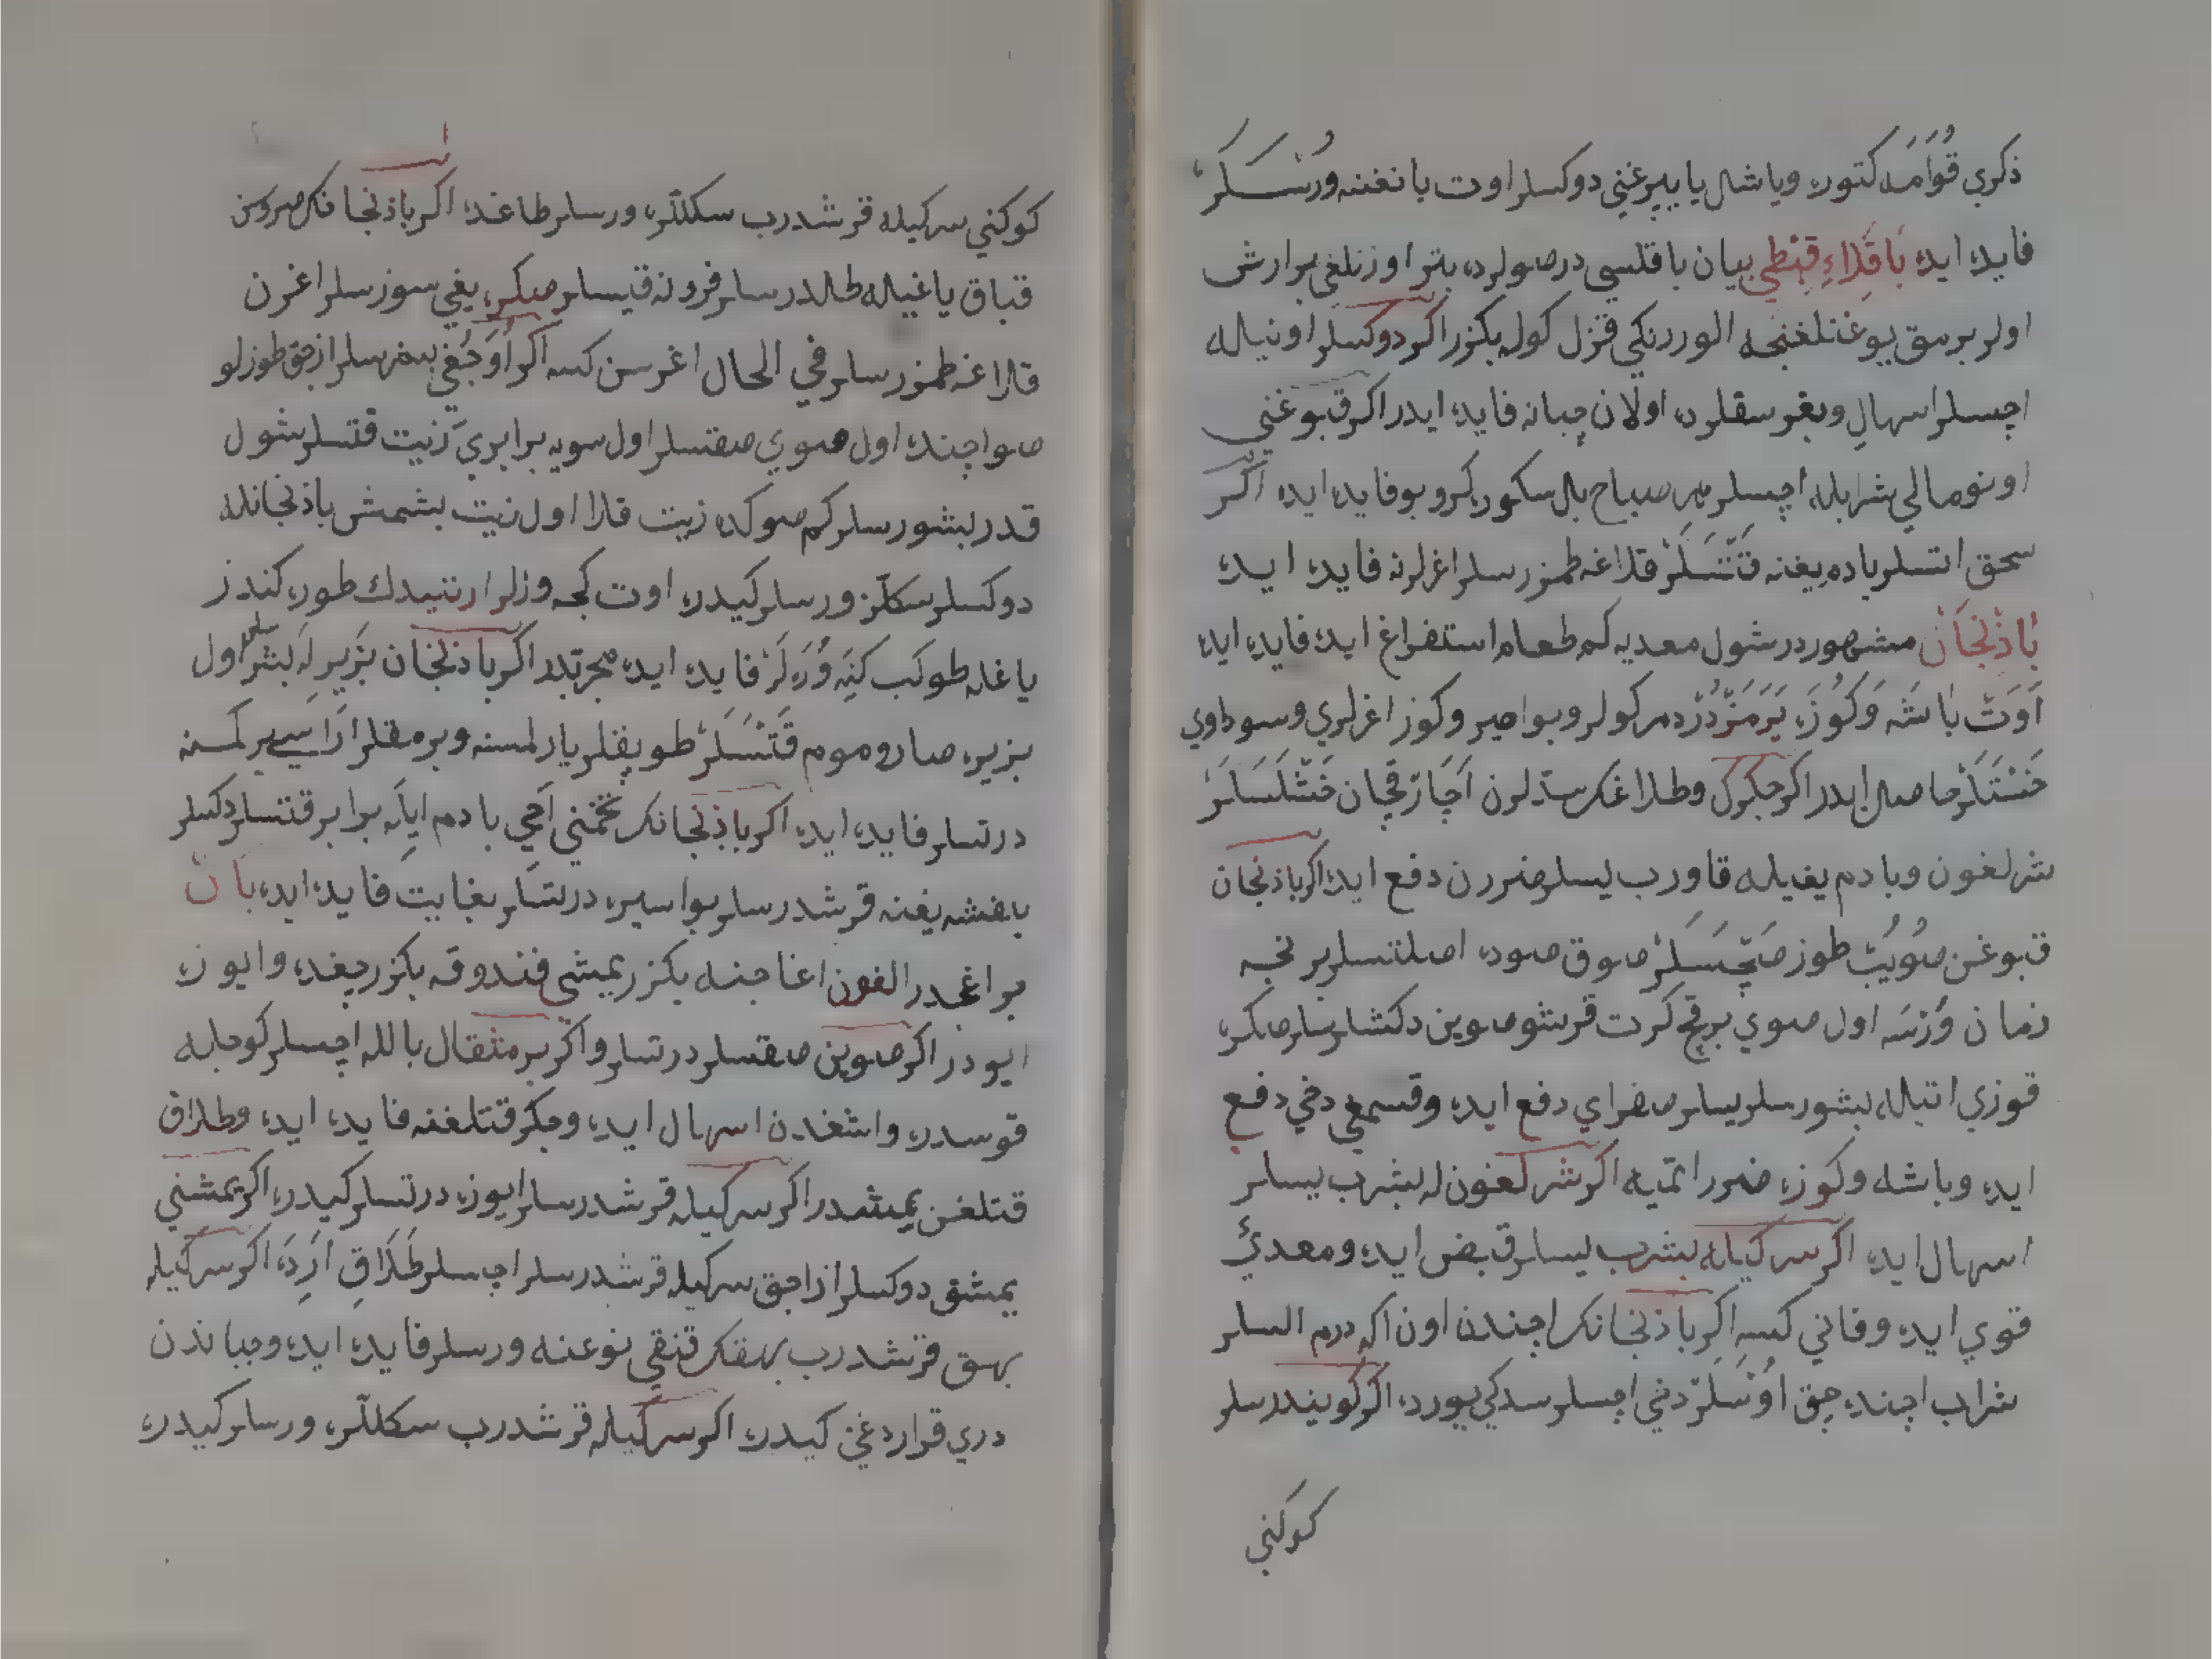 ذكري قوامه كتوره وياشل يابپرغني دوكسلر اوت يانغنه ورسلر
فايده ايده باقلاء قبطي بيان باقلسي در صولرده بتر اوزنلغي برارش
اولر برمق يوغنلغنجه الور رنكي قزل كوله بكزر اكر دوكسلر اونيله
اچسلر اسهال وبغرسقلرده اولان چبانه فايده ايدر اكر قبوغني
اونومالي شرابله اچسلر هر صباح بال سكوره كروبو فايده ايده اكر
سحق اتسلر بادم يغنه قتسلر قلاغه طمزرسلر اغرلرنه فايده ايده
باذنجان مشهوردر شول معديه كم طعام استفراغ ايده فايده ايده
اوت باشه وكوزه يرمزدر دمركولر وبواصير وكوز اغرلري وسوداوي
خستلر حاصل ايدر اكر جكرك وطلاغك سدلرن اچار قچان خشلسلر
شرلغون وبادم يغيله قاورب يسلر ضررن دفع ايده اكر باذنجان
قبوغن صويب طوز صچسلر صوق صوده اصلتسلر بر نجه
زمان ورسه اول صوي برقچ كرت قرشو صوين دكشلرسلر صكره
قوزي اتيله بشورسلر يسلر صفراي دفع ايده وقسمغي دخي دفع
ايده وباشه وكوزه ضرر اتميه اكر شرلغون له بشرب يسلر
اسهال ايده اكر سركيله بشرب يسلر قبض ايده ومعدئ
قوي ايده وقاني كسه اكر باذنجانك اچندن اون اكه درم السلر
شراب اچنده چق اوسلر دخي اچسلر سدكي يورده اكر كويندرسلر
كوكني
كوكني سركيله قرشدرب سكللره ورسلر طاغده اكر باذنجانك صروسن
قباق ياغيله طلدرسلر فرونه قيسلر صكره يغي سوزسلر اغرن
قلاغه طمزرسلر في الحال اغرسن كسه اكر اوجغي بغرسلر ازجق طوزلو
صو اچنده اول صوي صقسلر اول سويه برابري زيت قتسلر شول
قدر بشورسلر كم صوكده زيت قلا اول زيت بشمش باذنجانله
دوكسلر سكلز ورسلر كيدره اوت كجه وزلر ارتيدك طوره كندز
ياغله طوكب كنه ورلر فايده ايده مجربدر اكر باذنجان بزيرله بشرسلر اول
بزيره صارو موم قتسلر طوپقلر يارلمسنه وبرمقلر اراسي بركمسنه
درتسلر فايده ايده اكر باذنجانك تخمني اجي بادم ايله برابر قتسلر دكسلر
بنفشه يغنه قرشدرسلر بواسيره درتسلر بغايت فايده ايده بان
بر اغجدر الغون اغاجنه بكزر يمشي فندوقه بكزر جغده وايوزه
ايودر اكر صوين صقسلر درتسلر واكر بر مثقال بالله اچسلر كوجله
قوسدره واشغدن اسهال ايده وجكر قتلغنه فايده ايده وطلاق
قتلغن يمشدر اكر سركيله قرشدرسلر ايوزه درتسلر كيدره اكر يمشني
يمشق دوكسلر ازاجق سركيله قرشدرسلر اچسلر طلاق ارده اكر سركيله
بهق قرشدرب بهقك قنقي نوعنه ورسلر فايده ايده وچباندن
دري قراردغن كيدره اكر سركيله قرشدرب سكللره ورسلر كيدره